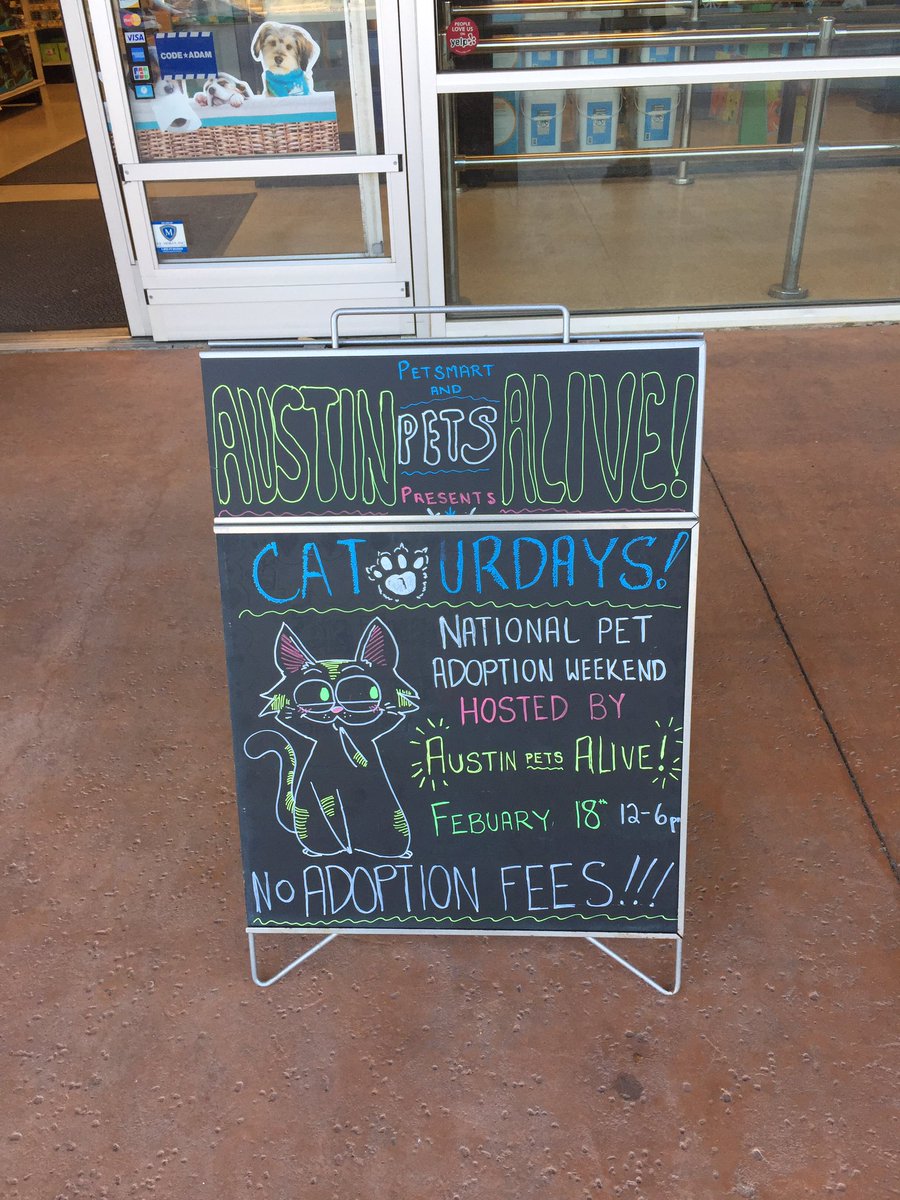 VISA
CODE★ADAM
JCB
PEOPLE
LOVE US
yelp
M
PETSMART
AND
AUSTIN PETS ALIVE!
PRESENTS
CAT URDAYS!
NATIONAL PET
ADOPTION WEEKEND
HOSTED BY
AUSTIN PETS ALIVE!
FEBUARY 18th 12-6pm
NO ADOPTION FEES!!!